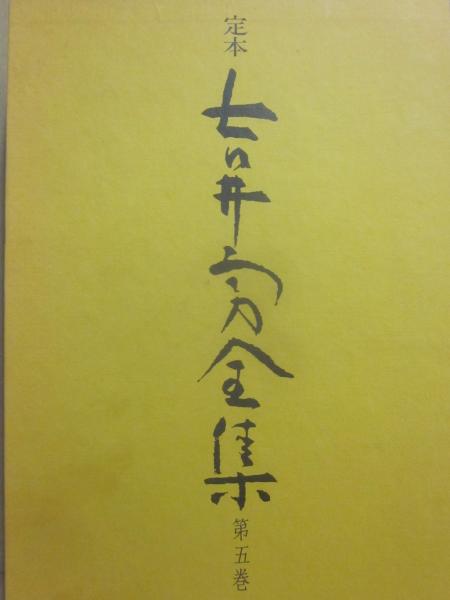 定本
吉井勇全集
第五巻